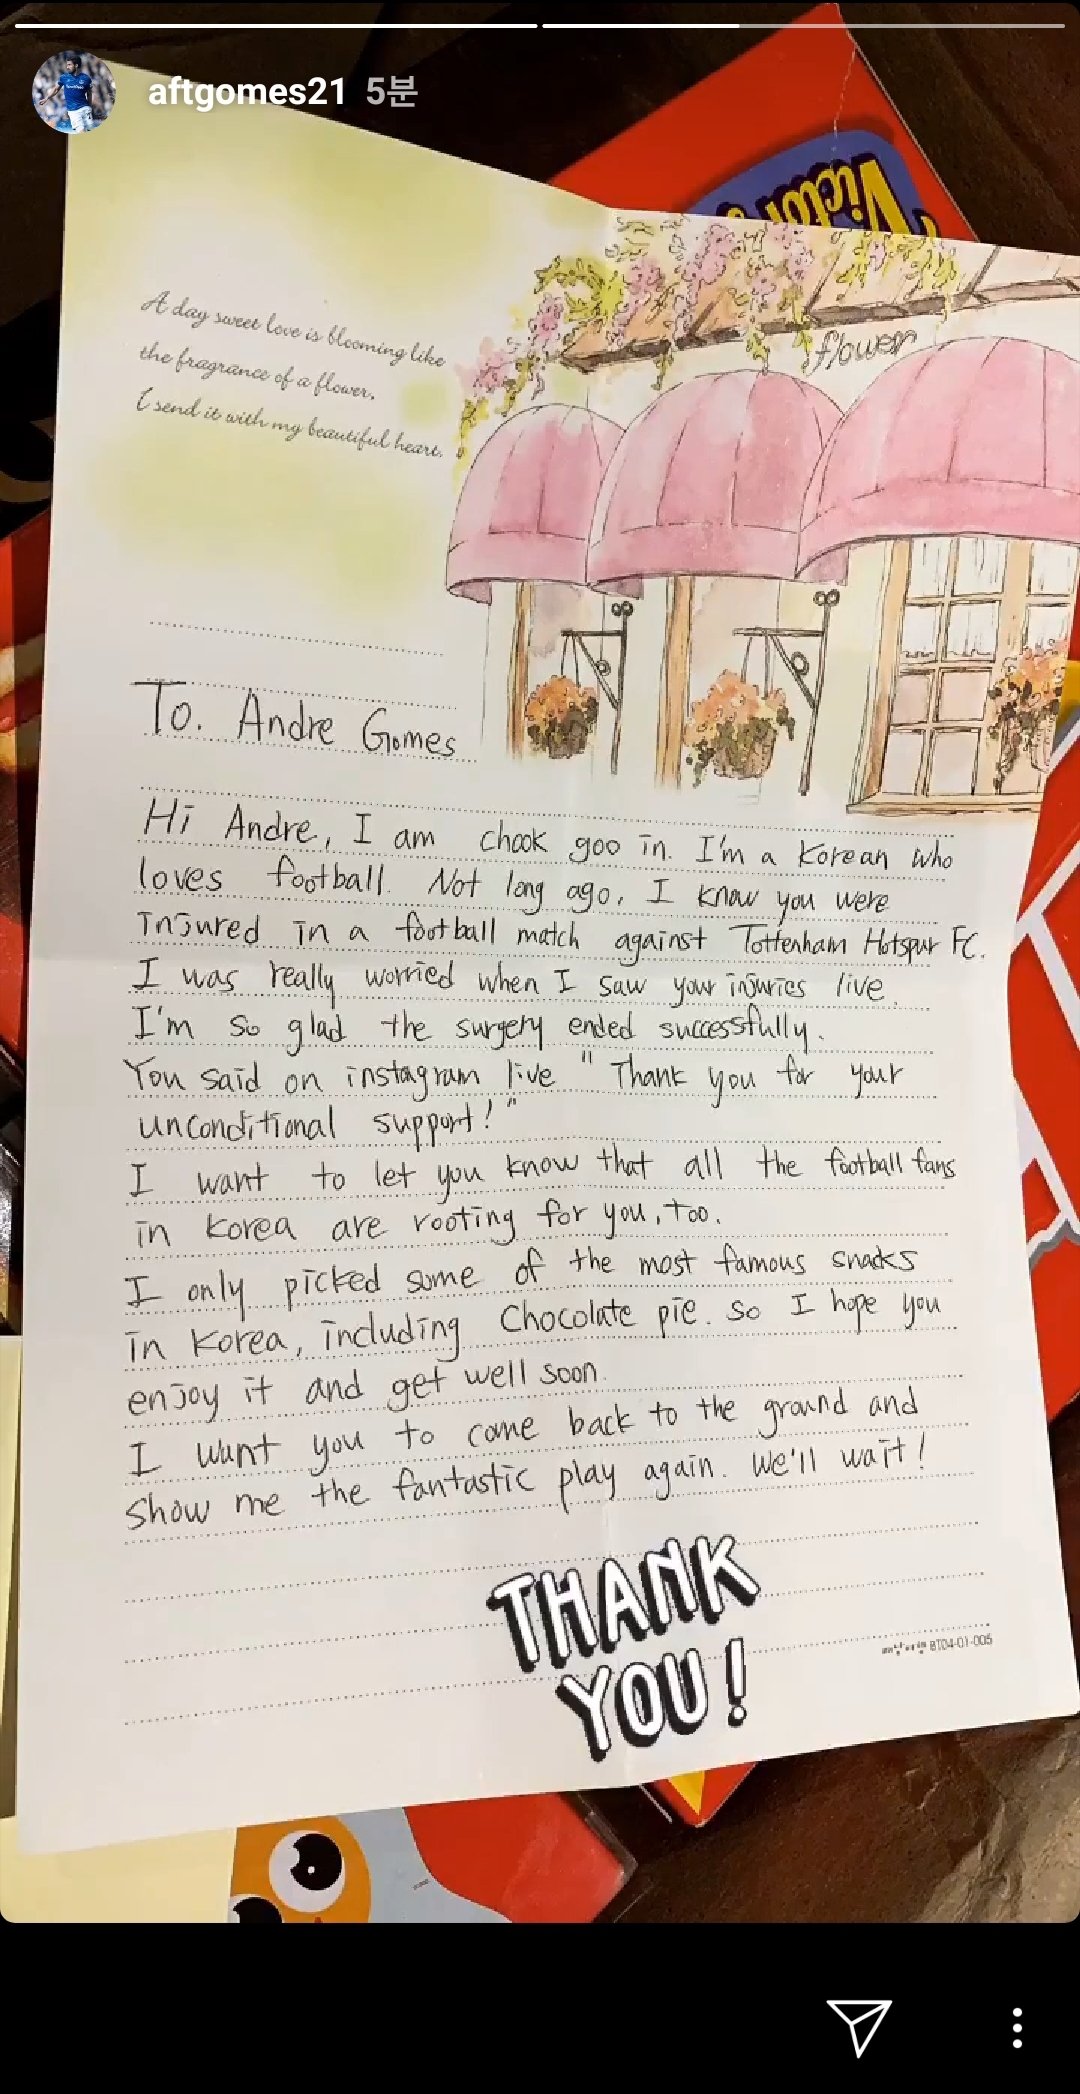 aftgomes21 5분
Victor
A day sweet love is blooming like
the fragrance of a flower.
I send it with my beautiful heart.
flower
To. Andre Gomes
Hi Andre, I am chook goo in. I'm a Korean who
loves football. Not long ago, I know you were
injured in a football match against Tottenham Hotspur FC.
I was really worried when I saw your injuries live.
I'm so glad the surgery ended successfully.
You said on instagram live "Thank you for your
unconditional support!"
I want to let you know that all the football fans
in Korea are rooting for you, too.
I only picked some of the most famous snacks
in Korea, including Chocolate pie. so I hope you
enjoy it and get well soon.
I want you to come back to the ground and
show me the fantastic play again. We'll wait!
THANK
YOU!
BT04-01-005